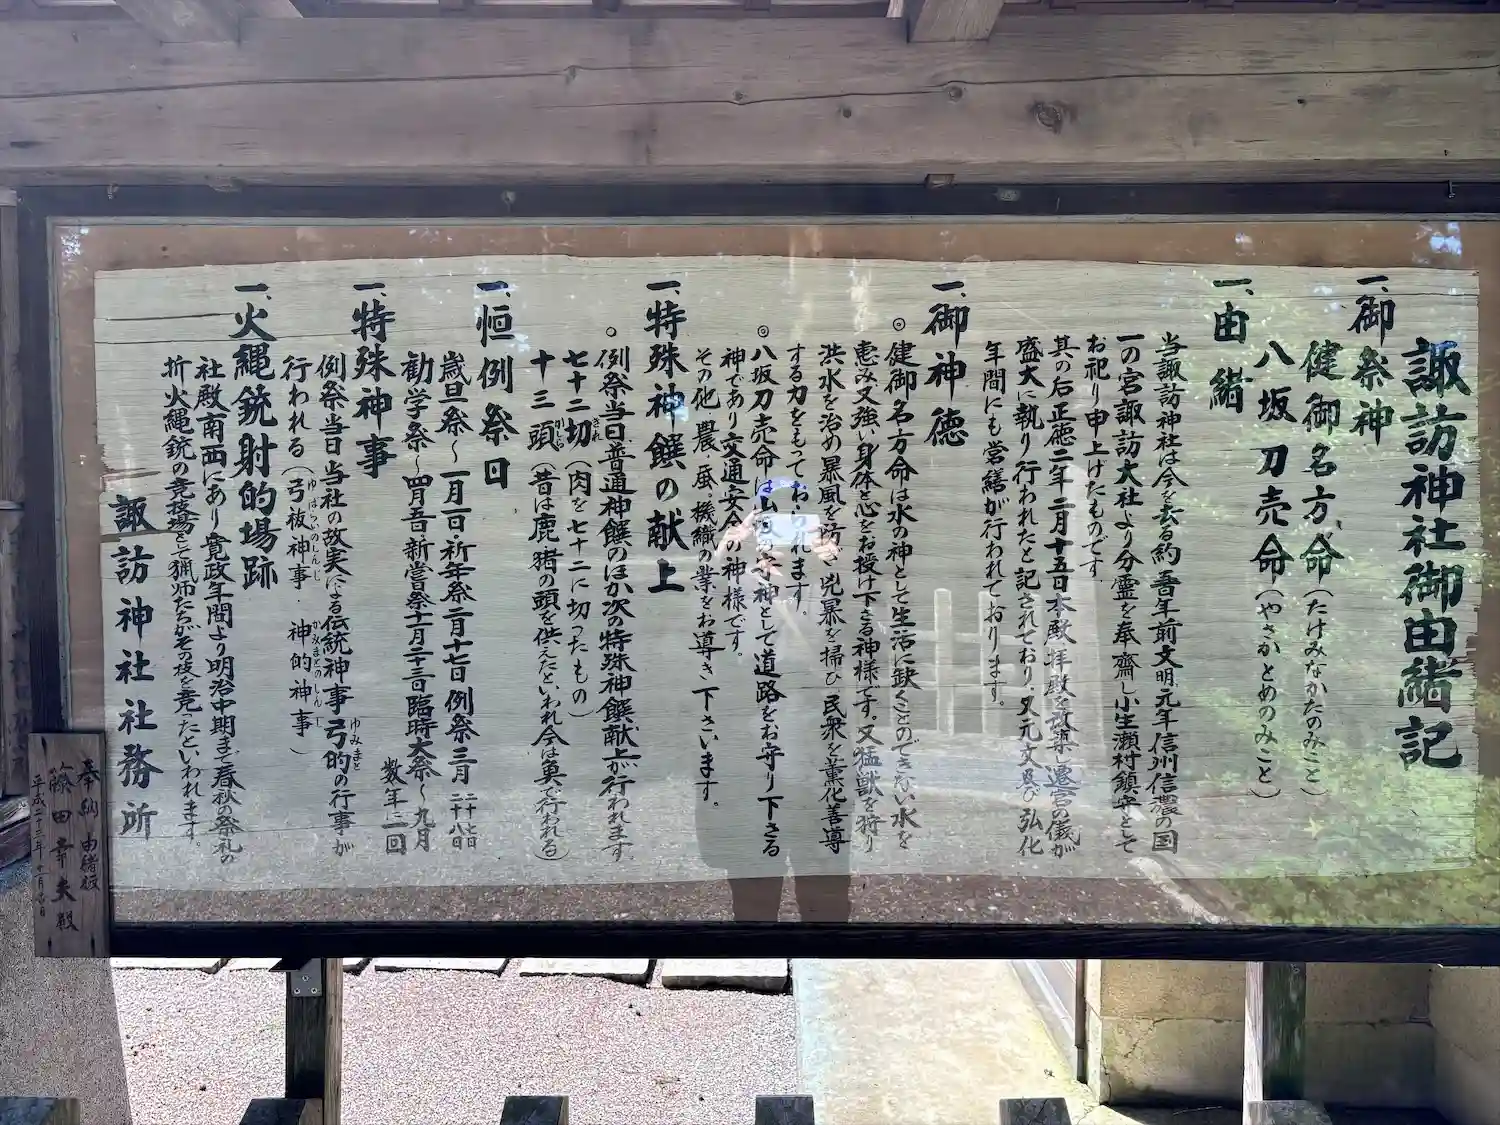 諏訪神社御由緒記
一、御祭神
健御名方命(たけみなかたのみこと)
八坂刀売命(やさかとめのみこと)
一、由緒
当諏訪神社は今を去る約五百年前文明元年信州信濃の国
一の宮諏訪大社より分霊を奉齋し小生瀬村鎮守として
お祀り申上げたものです
其の后正徳二年二月十五日本殿拝殿を改築し遷宮の儀が
盛大に執り行われたと記されており、又元文及び弘化
年間にも営繕が行われております。
一、御神徳
◎健御名方命は水の神として生活に欠くことのできない水を
恵み又強い身体と心をお授け下さる神様です。又猛獣を狩り
洪水を治め暴風を防ぎ兇暴を掃ひ民衆を薫化善導
する力をもっておられます。
◎八坂刀売命は山の神として道路をお守り下さる
神であり交通安全の神様です。
その他農、蚕、機織の業をお導き下さいます。
一、特殊神饌の献上
○例祭当日普通神饌のほか次の特殊神饌献上が行われます。
七十二切(肉を七十二に切ったもの)
きれ
十三頭(昔は鹿、猪の頭を供えたといわれ今は魚で行われる)
かしら
一、恒例祭日
歳旦祭〜一月一日・祈年祭二月十七日例祭三月二十七日二十八日
勧学祭〜四月五日・新嘗祭十一月二十三日臨時大祭〜九月
数年に一回
一、特殊神事
例祭当日当社の故実による伝統神事弓的の行事が
ゆみまと
行われる(弓祓神事・神的神事)
ゆばらいのしんじ かみまとのしんじ
一、火縄銃射的場跡
社殿南西にあり寛政年間より明治中期まで春秋の祭礼の
折火縄銃の競技場として猟師たちがその技を競ったといわれます。
諏訪神社社務所
奉納 由緒板
篠田 夫殿
平成二十三年十一月吉日